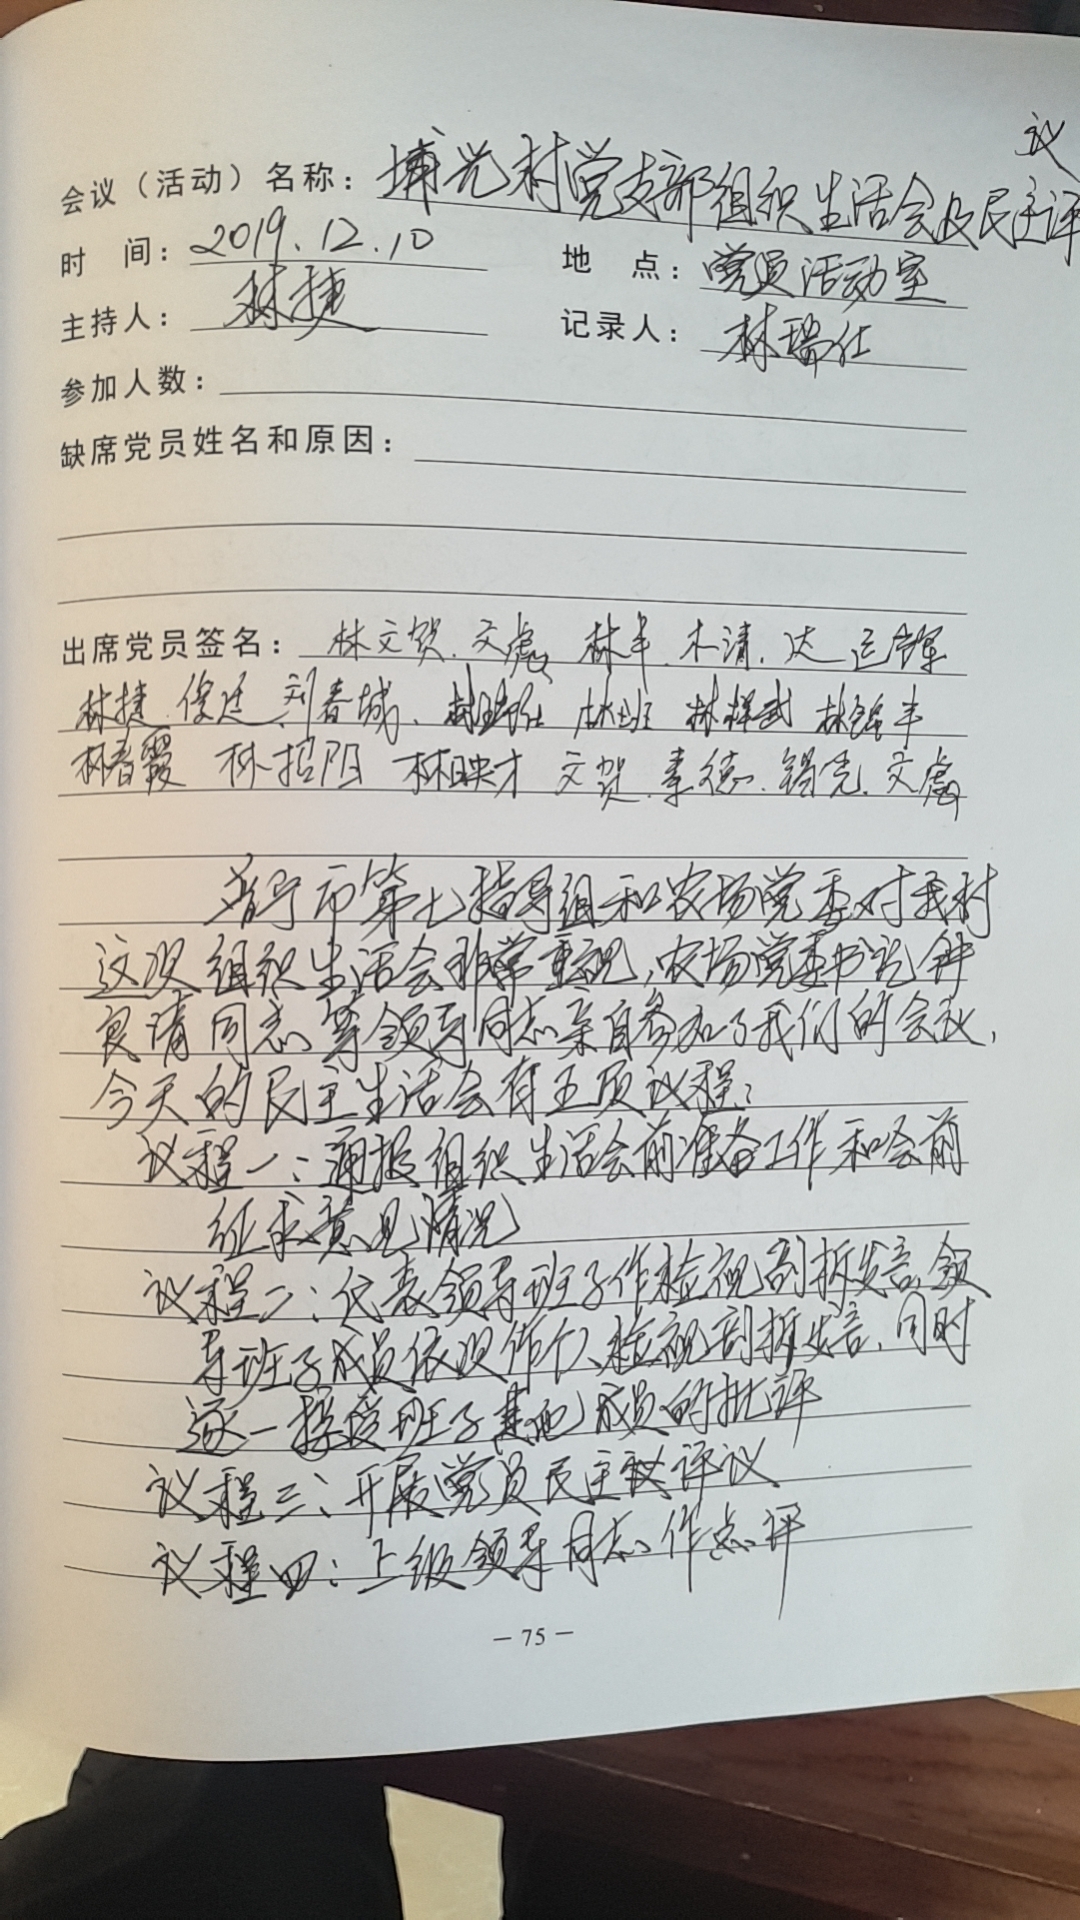 议
会议（活动）名称：埔光村党支部组织生活会及民主评
时 间：2019.12.10 地 点：党员活动室
主持人：林捷 记录人：林瑞仕
参加人数：
缺席党员姓名和原因：
出席党员签名：林文贺.文彪 林丰.木清.达 运辉
林捷.俊廷.刘春城.林瑞仕 林班 林祥武 林锦丰
林春霞 林招阳 林映才 文贺.素德.锡光.文彪
普宁市第七指导组和农场党委对我村
这次组织生活会非常重视,农场党委书记钟
良清同志等领导同志亲自参加了我们的会议,
今天的民主生活会有五项议程:
议程一:通报组织生活会前准备工作和会前
征求意见情况
议程二:代表领导班子作检视剖析发言,领
导班子成员依次作个人检视剖析发言,同时
逐一接受班子其他成员的批评
议程三:开展党员民主评议
议程四:上级领导同志作点评
— 75 —